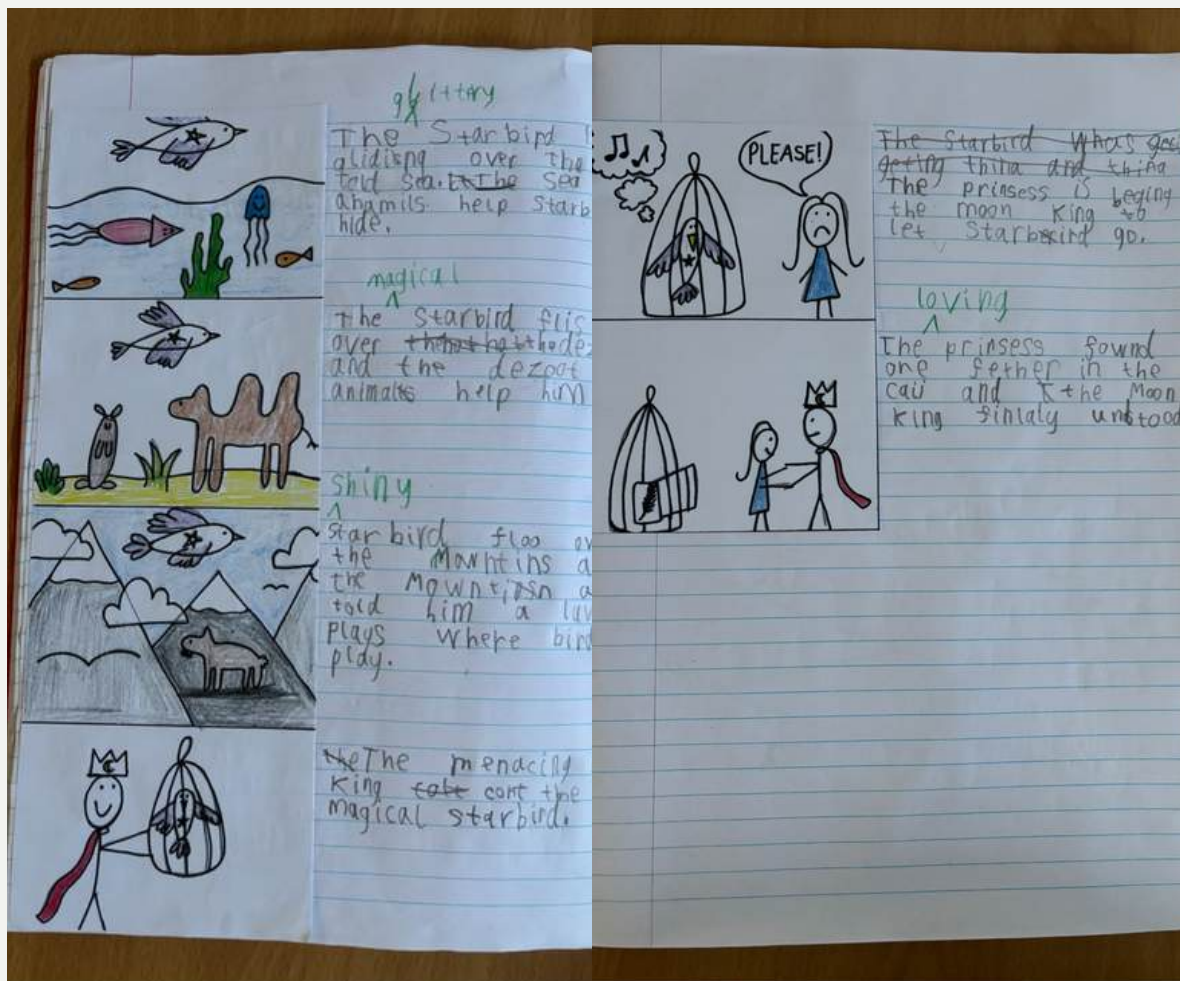 glittery
The Starbird
glidisng over the
told sea. The sea
anamils help Starb
hide.
magical
The Starbird flis
over the dez
and the dezoot
animals help him
shiny
starbird floo ov
the Mowntins a
the Mowntisn a
told him a luv
plays where bird
play.
the The menacing
King cort the
magical starbird.
PLEASE!
The Starbird whas get
geting thina and thina
The prinsess is beging
the moon King to
let Starbird go.
loving
The prinsess fownd
one fether in the
caij and the Moon
King finlaly undstood